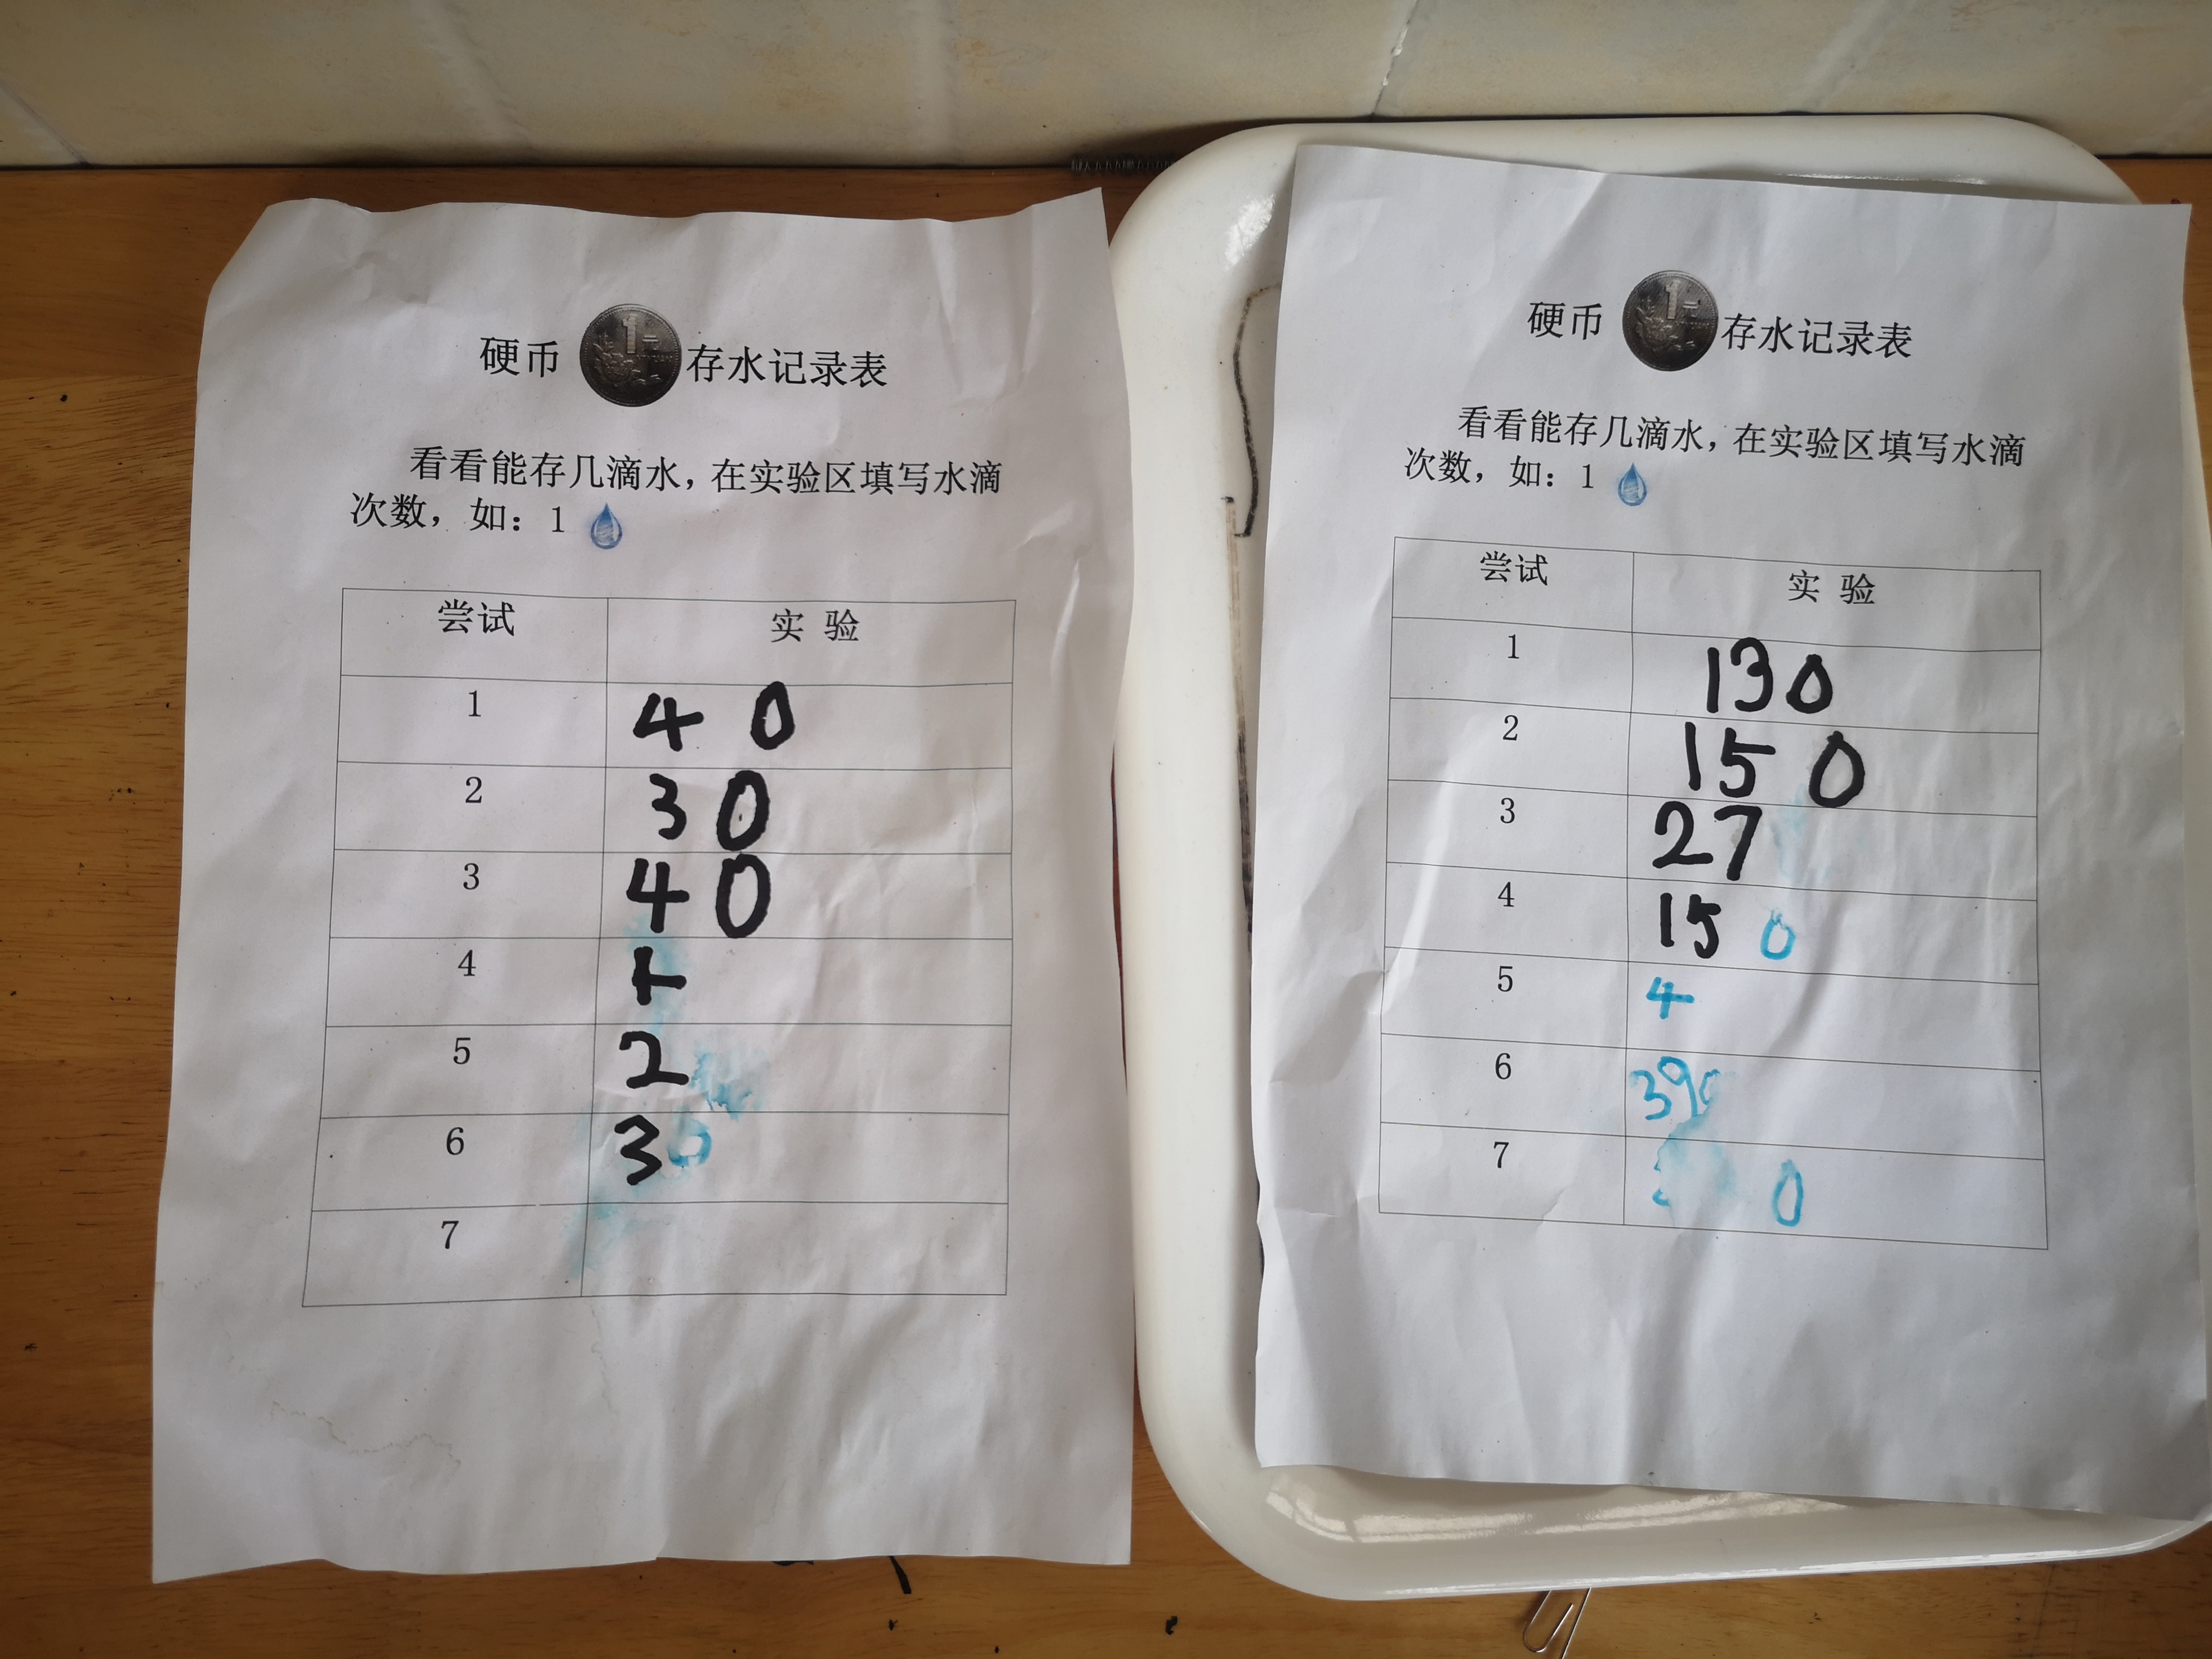 硬币 1元 存水记录表
看看能存几滴水，在实验区填写水滴
次数，如：1
尝试 实 验
1 4 0
2 3 0
3 4 0
4
5 2
6 3 0
7
硬币 1元 存水记录表
看看能存几滴水，在实验区填写水滴
次数，如：1
尝试 实 验
1 130
2 15 0
3 27
4 15 0
5 4
6 39
7 0